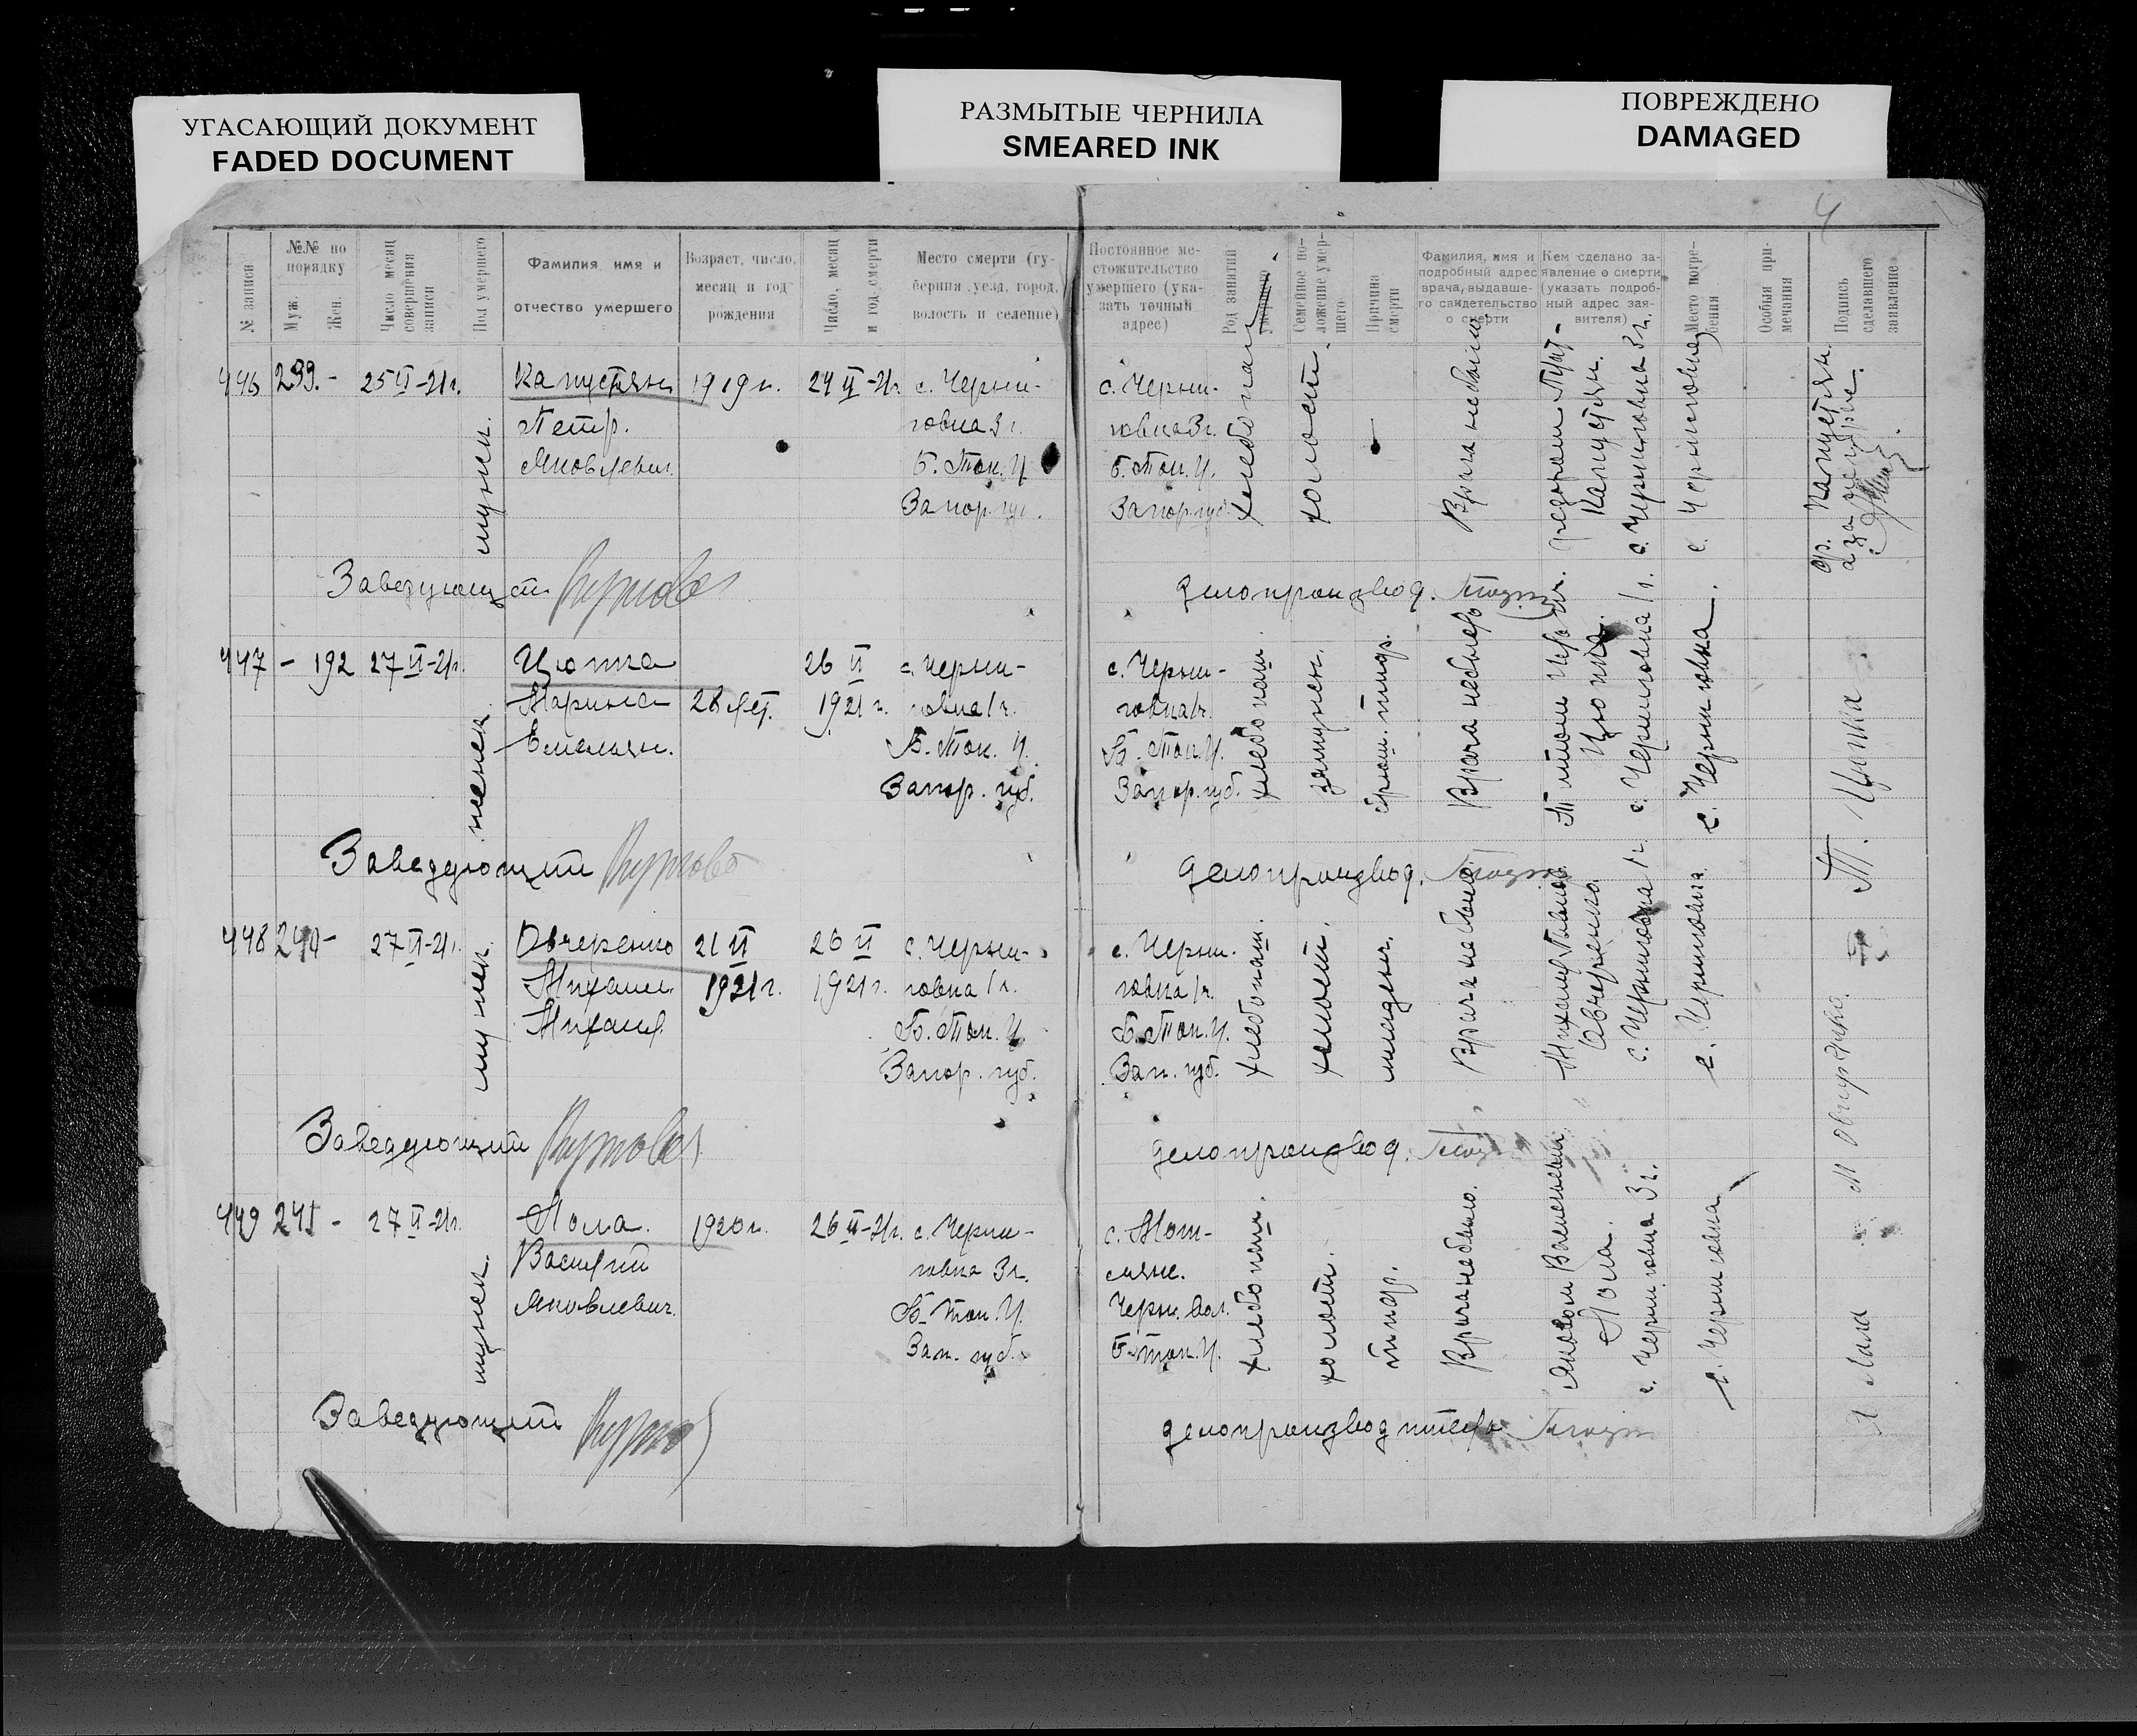 УГАСАЮЩИЙ ДОКУМЕНТ
FADED DOCUMENT
РАЗМЫТЫЕ ЧЕРНИЛА
SMEARED INK
ПОВРЕЖДЕНО
DAMAGED
4
№ записи
№№ по порядку
Муж.
Жен.
Число, месяц совершения записи
Пол умершего
Фамилия, имя и отчество умершего
Возраст, число, месяц и год рождения
Число, месяц и год смерти
Место смерти (губерния, уезд, город, волость и селение)
Постоянное местожительство умершего (указать точный адрес)
Род занятий умершего
Семейное положение умершего
Причина смерти
Фамилия, имя и подробный адрес врача, выдавшего свидетельство о смерти
Кем сделано заявление о смерти (указать подробный адрес заявителя)
Место погребения
Особыя примечания
Подпись сделавшего заявление
446 299.- 25 II-21г.
мужск.
Капустян
Петр.
Яковлевич.
1919 г.
24 II-21г.
с. Черни-
говка 3 г.
Б. Ток. У.
Запор губ.
с. Черни-
говка 3 г.
Б. Ток. У.
Запор губ.
хлебопаш
холост.
-
Врача небыло
Капустян.
с. Черниговка 3 г.
с. Черниговка
Заведующ
делопроизвод.
447 - 192 27 II-21г.
женск.
Цюпка
Марина
Емельян.
28 лет.
26 II
1921 г.
с. Черни-
говка 1 г.
Б. Ток. У.
Запор. губ.
с. Черни-
говка 1г.
Б. Ток. У.
Запор. губ.
хлебопаш.
замужем.
брюш. тиф.
Врача небыло
Цюпка.
с. Черниговка 1 г.
с. Черниговка.
Т. Цюпка
Заведующий
делопроизвод.
448 27 II-21г.
мужск.
Овчеренко
Михаил
Михаил.
21 II
1921 г.
26 II
1921 г.
с. Черни-
говка 1 г.
Б. Ток. У.
Запор. губ.
с. Черни-
говка 1 г.
Б. Ток. У.
Зап. губ.
хлебопаш.
холост.
младен.
Врача небыло
Овчеренко
с. Черниговка 1 г.
с. Черниговка
Заведующий
делопроизвод.
449 27 II-21г.
мужск.
Лола.
Василий
Яковлевич.
1920 г.
26 II-21г.
с. Черни-
говка 3 г.
Б. Ток. У.
Зап. губ.
Черн. вол.
Б-Ток. У.
хлебопаш.
холост.
тиф.
Врача небыло.
Лола.
с. Черниговка 3 г.
с. Черниговка
Заведующий
делопроизводитель